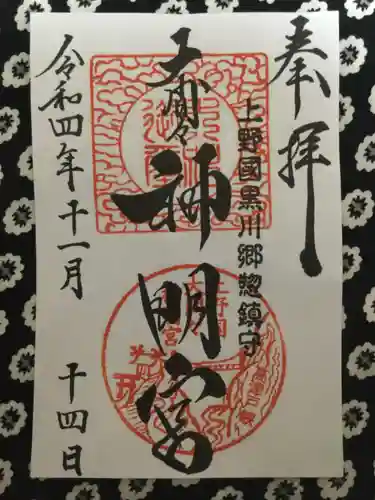 奉拝
上野國黒川郷惣鎮守
大間々
神明宮
令和四年十一月
十四日